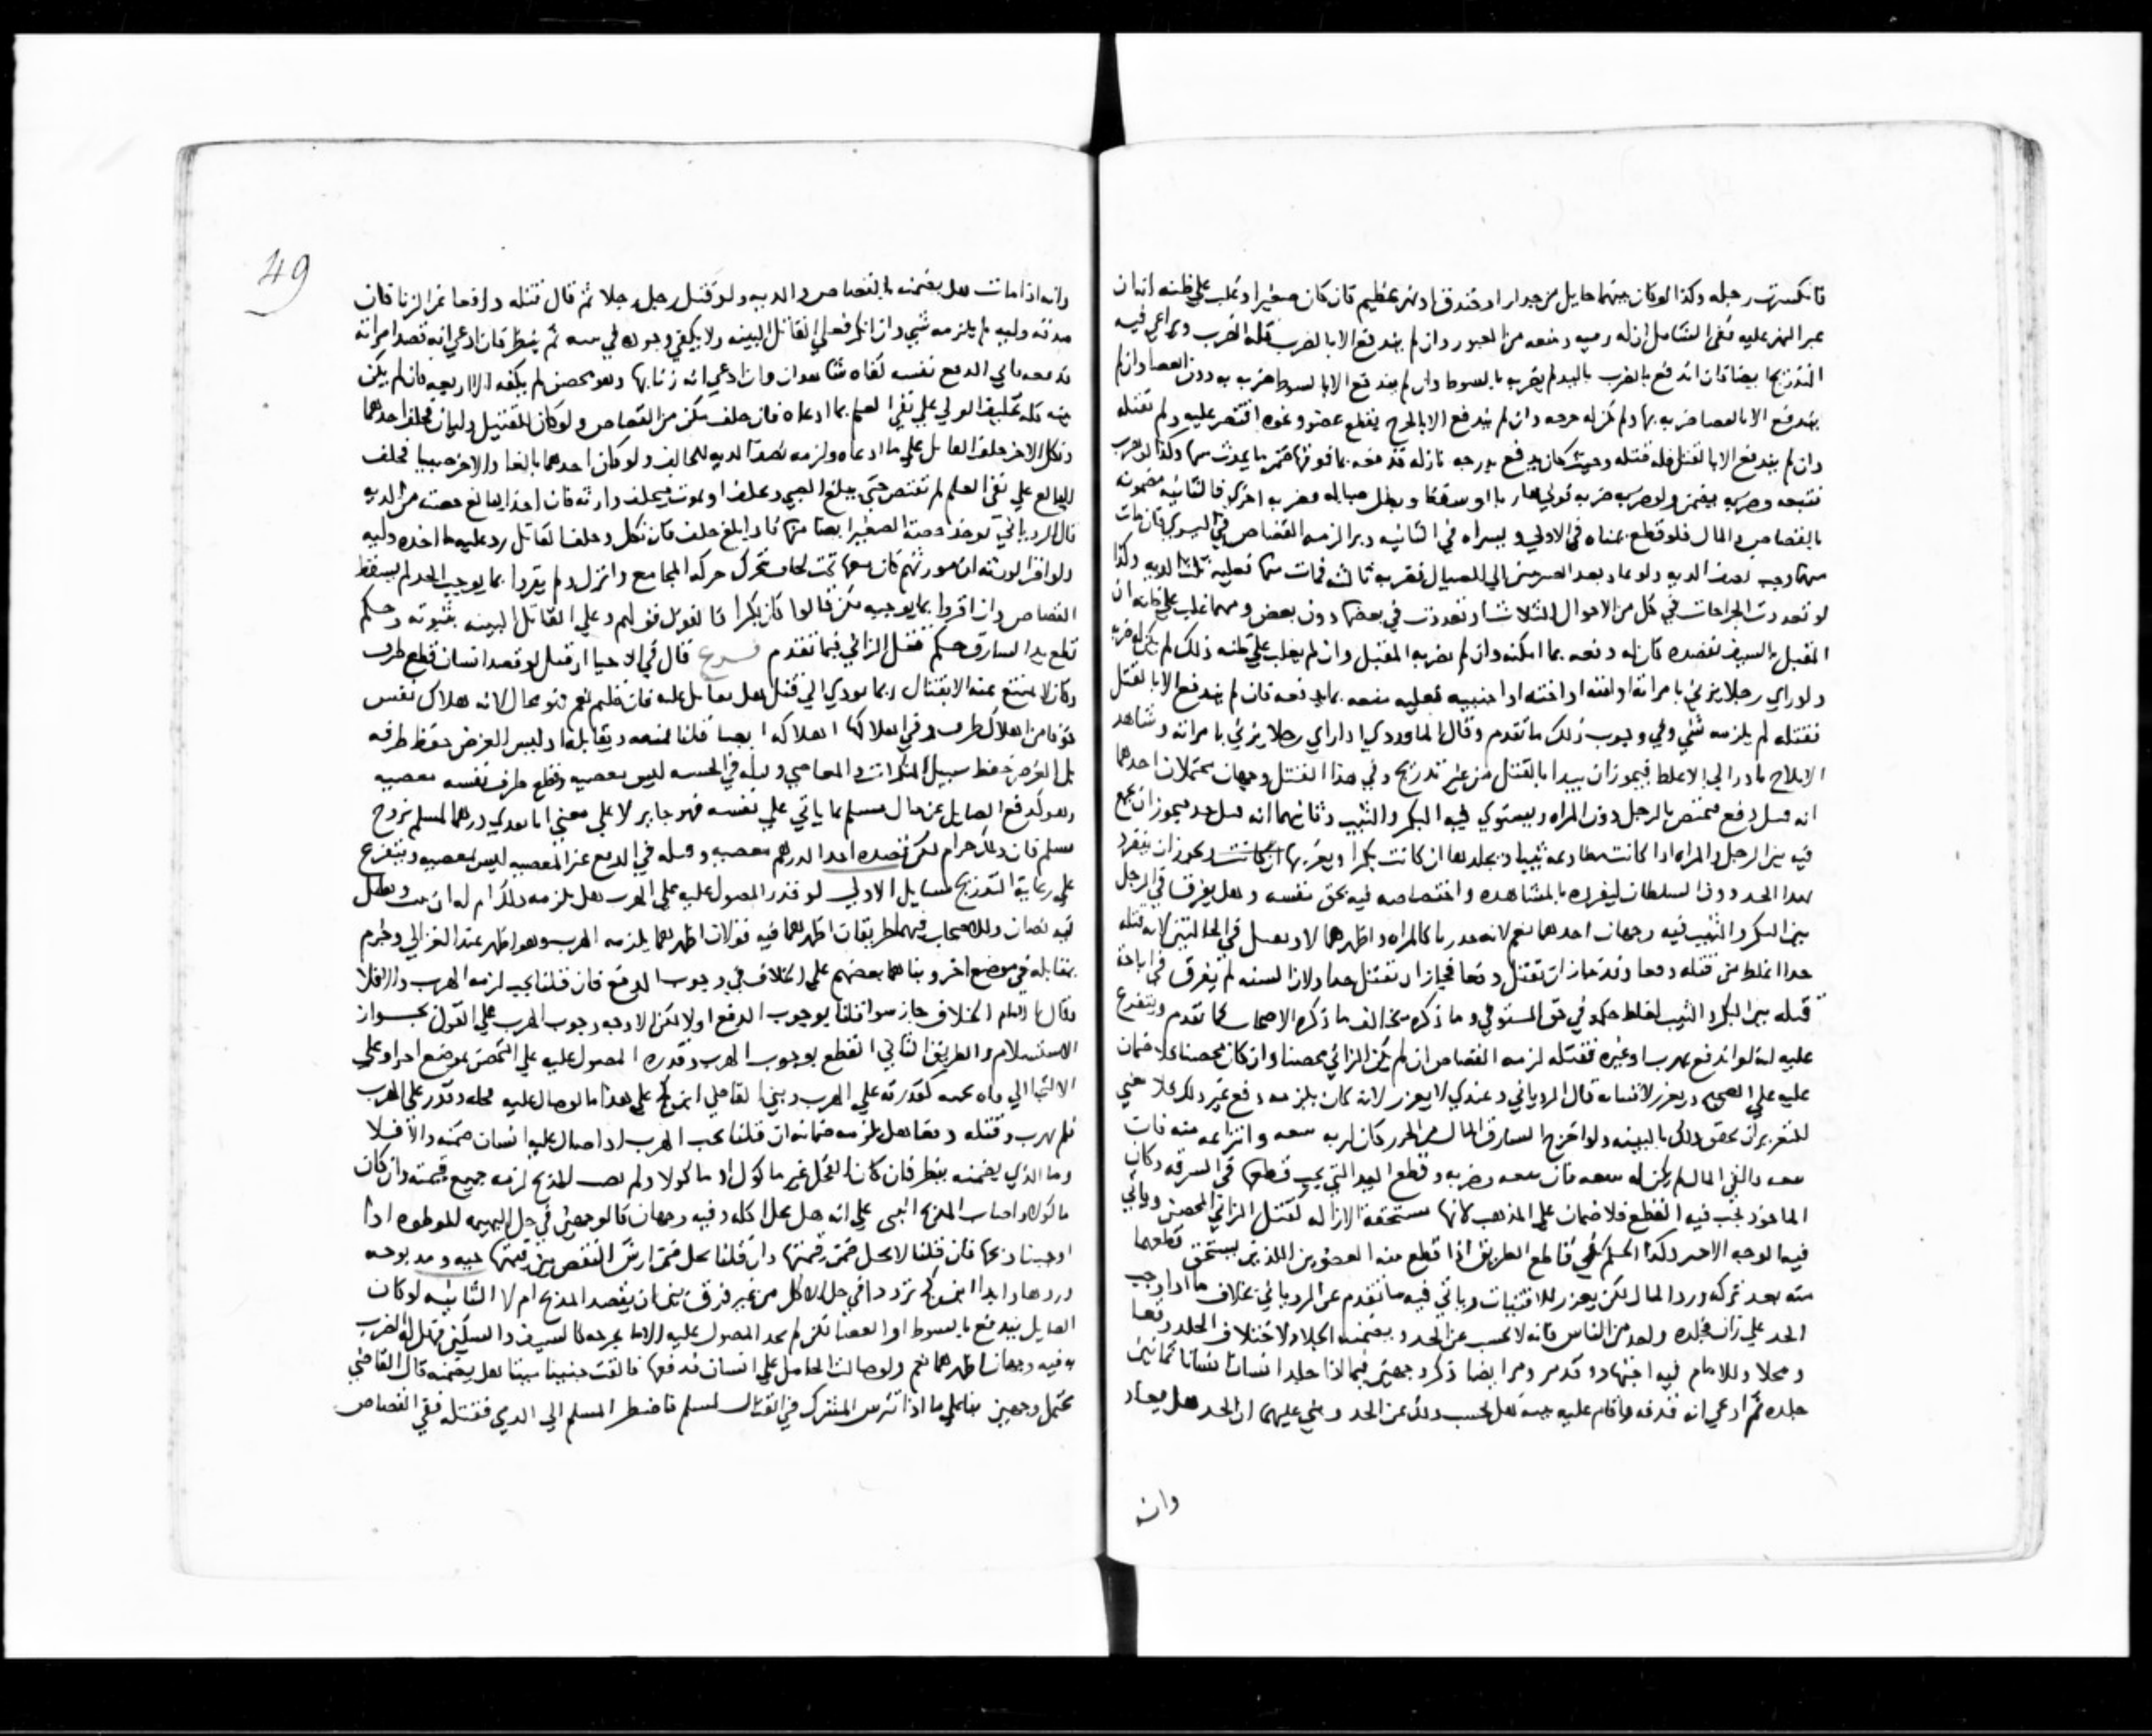 فانكسرت رجله وكذا لو كان بينهما حايل من جدار او خندق او نهر عظيم فان كان صغيرا وغلب على ظنه انه ان
عبر النهر عليه ففي الشامل ان له رميه ومنعه من العبور وان لم يندفع الا بالضرب فله الضرب ويراعي فيه
التدريج ايضا فان اندفع بالضرب باليد لم يضربه بالسوط وان لم يندفع الا بالسوط ضربه به دون العصا وان لم
يندفع الا بالعصا ضربه بها ولم يكن له جرحه وان لم يندفع الا بالجرح يقطع عضو ونحوه اقتصر عليه ولم يقتله
وان لم يندفع الا بالقتل فله قتله وحيث كان يدفع بدرجه نازله فدفعه بما فوقها ضمن ما يحدث منها وكذا لو هرب
فتبعه وضربه يضمن ولو ضربه ضربه فولي هاربا او سقط وبطل صياله فضربه اخري فالثانيه مضمونه
بالقصاص والمال فلو قطع يمناه في الاولي ويسراه في الثانيه وبرا لزمه القصاص في اليسري فان مات
منهما وجب نصف الديه ولو عاد بعد الضربتين الي الصيال فضربه ثالثه فمات منها فعليه ثلث الديه وكذا
لو تعددت الجراحات في كل من الاحوال الثلاث او تعددت في بعضها دون بعض ومهما غلب علي ظنه ان
المقبل بالسيف يقصده كان له دفعه بما امكنه وان لم يضربه المقبل وان لم يغلب علي ظنه ذلك لم يكن له ضربه
ولو راي رجلا يزني بامراته او ابنته او اخته او اجنبيه فعليه منعه بما يدفعه فان لم يندفع الا بالقتل
فقتله لم يلزمه شي وفي وجوب ذلك ما تقدم وقال الماوردي اذا راي رجلا يزني بامراته وشاهد
الايلاج بادر الي الاغلظ فيجوز ان يبدا بالقتل من غير تدريج وفي هذا القتل وجهان محتملان احدهما
انه قتل دفع فيختص بالرجل دون المراه ويستوي فيه البكر والثيب وثانيهما انه قتل حد فيجوز ان يجمع
فيه بين الرجل والمراه اذا كانت مطاوعه ثيبا ويجلدها ان كانت بكرا ويغربها ان كانت ويجوز ان ينفرد
بهذا الحد دون السلطان لتفرده بالمشاهده واختصاصه فيه بحق نفسه وهل يفرق في الرجل
بين البكر والثيب فيه وجهان احدهما نعم لانه حد زنا كالمراه واظهرهما لا ويقتل في الحالتين لان قتله
حدا اغلظ من قتله دفعا وقد جاز ان يقتل دفعا فجاز ان يقتل حدا ولان السنه لم تفرق في اباحه
قتله بين البكر والثيب لغلظ حكمه في حق المستوفي وما ذكره يخالف ما ذكره الاصحاب كما تقدم ويتفرع
عليه لو اندفع بهرب او غيره فقتله لزمه القصاص ان لم يكن الزاني محصنا وان كان محصنا فلا ضمان
عليه علي الصحيح ويعزر لافتياته قال الروياني وعندي لا يعزر لانه كان يلزمه دفع غير ذلك فلا معني
للتعزير ان تحقق ذلك بالبينه ولو اخرج السارق المال من الحرز كان له ضربه ومنعه وانتزاعه منه فان
معه والقي المال لم يكن له منعه فان منعه وضربه وقطع اليد التي يجب قطعها في السرقه وكان
الماخوذ يجب فيه القطع فلا ضمان علي المذهب لانها مستحقه الازاله كقتل الزاني المحصن وياتي
فيها الوجه الاخير وكذا الحكم في قاطع الطريق اذا قطع منه العضوين اللذين يستحق قطعهما
منه بعد تركه ورد المال لكن يعزر للافتيات وياتي فيه ما تقدم عن الروياني بخلاف ما اذا وجب
الحد علي زان فجلده واحد من الناس فانه لا يحسب عن الحد ويضمنه الجلاد لاختلاف الجلد وقتا
ومحلا وللامام فيه اجتهاد وقد مر ومر ايضا ذكر وجهين فيما اذا جلد انسان انسانا ثمانين
جلده ثم ادعي انه قذفه واقام عليه بينه هل يحسب ذلك عن الحد وبني عليهما ان الحد هل يعاد
وانه
49
وانه اذا مات هل يضمنه بالقصاص والديه ولو قتل رجل رجلا ثم قال قتلته دافعا عن الزنا فان
صدقه وليه لم يلزمه شي وان انكر فعلي القاتل البينه ولا يكفي وجوده في بيته ثم ينظر فان ادعي انه قصد امراته
فدفعه فابي الدفع نفسه كفاه شاهدان وان ادعي انه زنا بها وهو محصن لم يكفه الا اربعه فان لم يكن
بينه فله تحليف الولي علي نفي العلم بما ادعاه فان حلف مكن من القصاص ولو كان للقتيل وليان فحلف احدهما
ونكل الاخر حلف القاتل علي ما ادعاه ولزمه نصف الديه للحالف ولو كان احدهما بالغا والاخر صبيا فحلف
البالغ علي نفي العلم لم يقتص حتي يبلغ الصبي ويحلف او يموت فيحلف وارثه فان اخذ البالغ حصته من الديه
قال الروياني توخذ حصة الصغير ايضا منها فاذا بلغ حلف فان نكل وحلف القاتل رد عليه ما اخذه وليه
ولو اقر الورثه ان مورثهم كان معها تحت لحاف يتحرك حركه المجامع وانزل ولم يقروا بما يوجب الحد لم يسقط
القصاص وان اقروا بما يوجبه لكن قالوا كان بكرا فالقول قولهم وعلي القاتل البينه بثيوبته وحكم
قطع يد السارق حكم قتل الزاني فيما تقدم فرع قال في الاحيا ان قيل لو قصد انسان قطع طرف
وكان لا يمتنع عنه الا بقتال ربما يودي الي قتل هل يقاتل عليه فان قلتم نعم فهو محال لانه هلاك نفس
خوفا من اهلاك طرف وفي اهلاكها اهلاكه ايضا قلنا يمنعه ويقاتله اذ ليس الغرض حفظ طرفه
بل الغرض حفظ سبيل المنكرات والمعاصي وقتله في الحسبه ليس بمعصيه وقطع طرف نفسه معصيه
وهو كدفع الصايل عن مال مسلم بما ياتي علي نفسه فهو جايز لا علي معني انا نفدي درهما لمسلم بروح
مسلم فان ذلك حرام لكن قصده اخذ الدرهم معصيه وقتله في الدفع عن المعصيه ليس بمعصيه ويتفرع
علي رعاية التدريج مسايل الاولي لو قدر المصول عليه علي الهرب هل يلزمه ذلك ام له ان يثبت ويقاتل
فيه نصان وللاصحاب فيهما طريقان اظهرهما فيه قولان اظهرهما يلزمه الهرب وهو اظهر عند الغزالي وجزم
بمقابله في موضع اخر وبناهما بعضهم علي الخلاف في وجوب الدفع فان قلنا يجب لزمه الهرب والا فلا
وقال الامام الخلاف جاز سوا قلنا بوجوب الدفع او لا لكن الاوجه وجوب الهرب علي القول بجواز
الاستسلام والطريق الثاني القطع بوجوب الهرب وقدره المصول عليه علي التحصن بموضع اخر او علي
الالتجا الي فئه تحميه كقدرته علي الهرب وبني القاضي ابن كج علي هذا ما لو صال عليه فحله وقدر علي الهرب
فلم يهرب وقتله دفعا هل يلزمه ضمانه ان قلنا يجب الهرب اذا صال عليه انسان ضمنه والا فلا
وما الذي يضمنه ينظر فان كان الفحل غير ماكول او ماكولا ولم يصب المذبح لزمه جميع قيمته وان كان
ماكولا واصاب المذبح انبني علي انه هل يحل اكله وفيه وجهان كالوجهين في حل البهيمه الموطوه اذا
اوجبنا ذبحها فان قلنا لا يحل ضمن قيمتها وان قلنا يحل ضمن ارش النقص بين قيمتها حيه ومذبوحه
وردها وابدا ابن كج تردد في حل الاكل من غير فرق بين ان يقصد المذبح ام لا الثانيه لو كان
الصايل يندفع بالسوط او العصا لكن لم يجد المصول عليه الا ما يجرحه كالسيف والسكين فهل له الضرب
به فيه وجهان اظهرهما نعم ولو صالت الحامل علي انسان فدفعها فالقت جنينا ميتا هل يضمنه قال القاضي
يحتمل وجهين بنا علي ما اذا تترس المشرك في القتال بمسلم فاضطر المسلم الي الرمي فقتله ففي القصاص